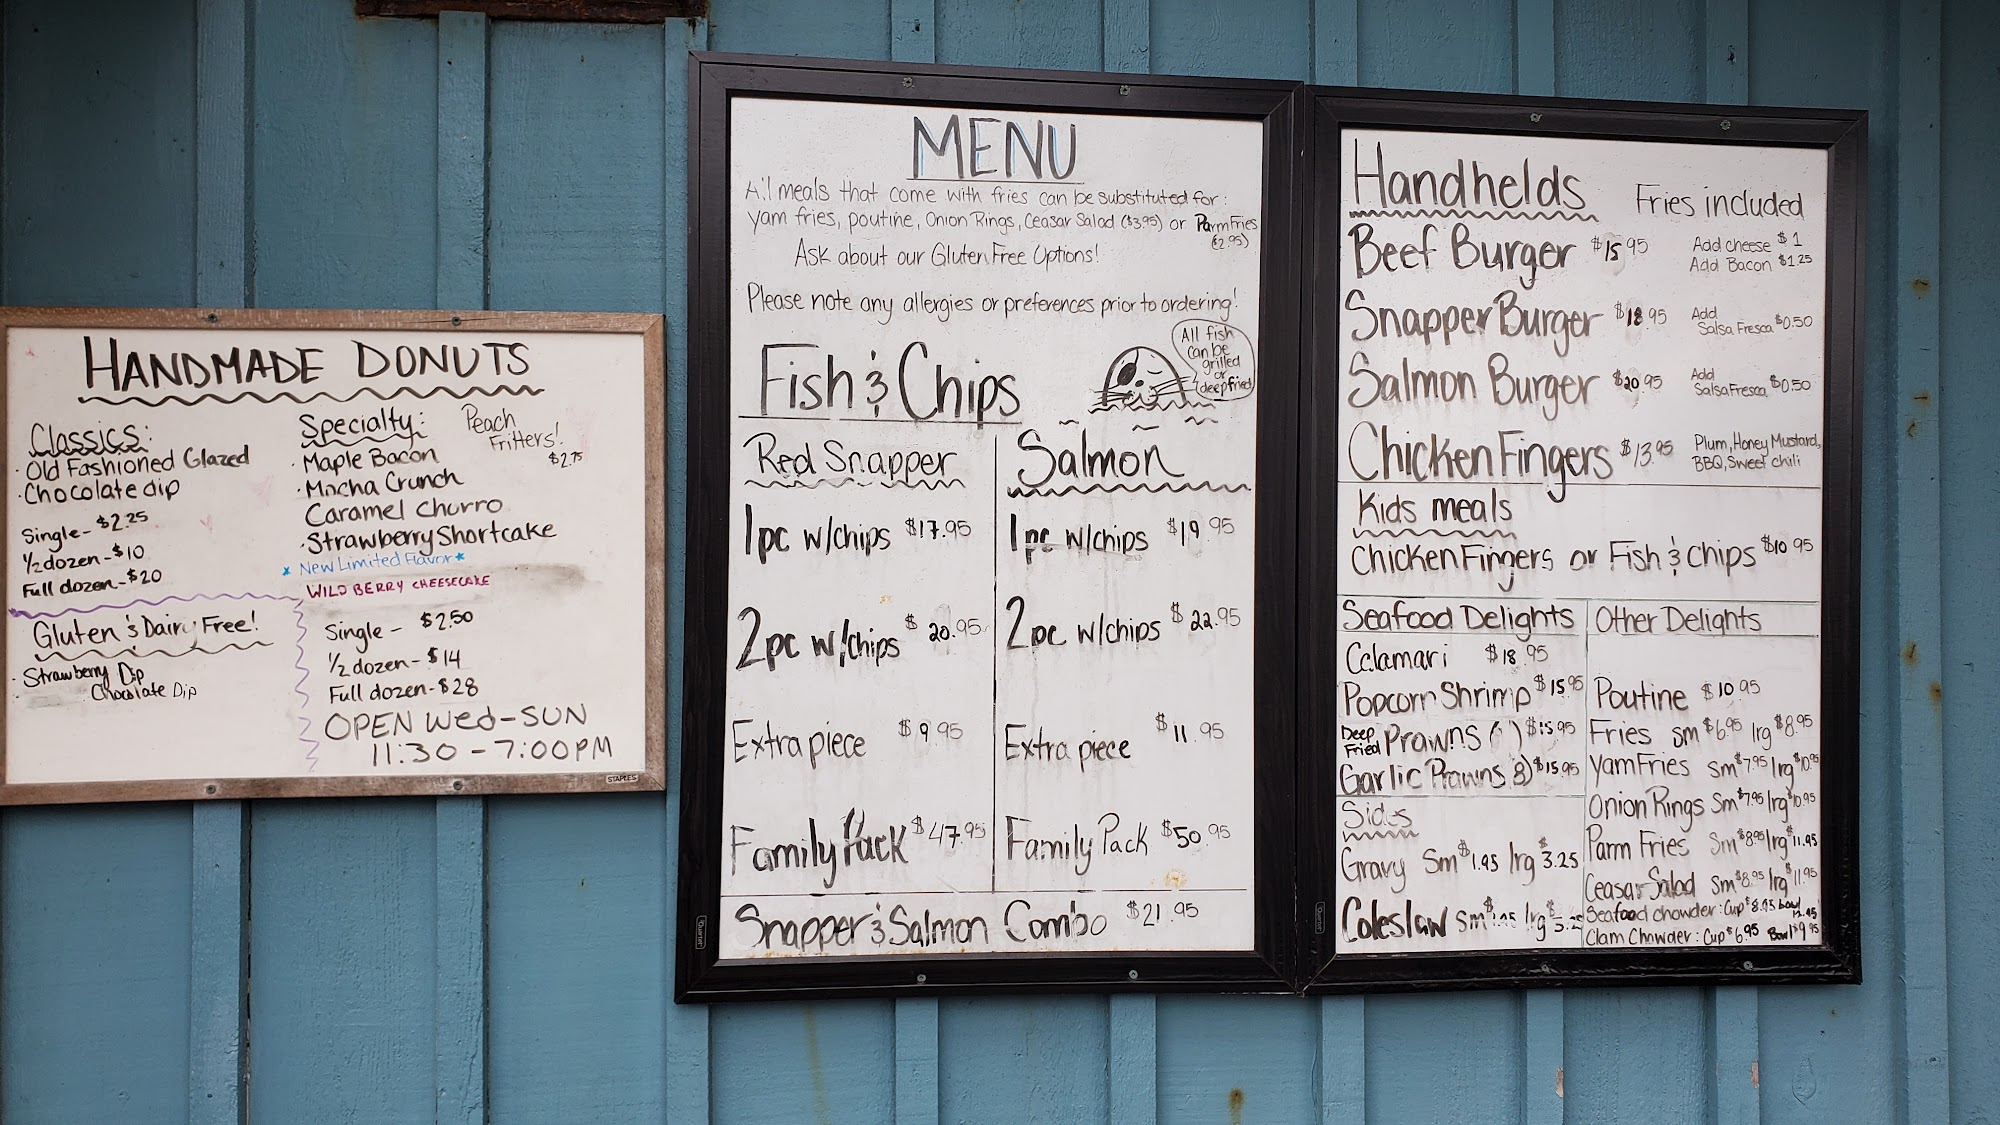 HANDMADE DONUTS
Classics:
· Old Fashioned Glazed
· Chocolate dip
Single - $2.25
1/2 dozen - $10
Full dozen - $20
Gluten & Dairy Free!
· Strawberry Dip
Chocolate Dip
Specialty:
Peach
Fritters!
$2.75
· Maple Bacon
· Mocha Crunch
Caramel Churro
· Strawberry Shortcake
* New Limited Flavor *
WILD BERRY CHEESECAKE
Single - $2.50
1/2 dozen - $14
Full dozen - $28
OPEN Wed - SUN
11:30 - 7:00PM
STAPLES
MENU
All meals that come with fries can be substituted for:
yam fries, poutine, Onion Rings, Ceasar Salad ($3.95) or Parm Fries
($2.95)
Ask about our Gluten Free Options!
Please note any allergies or preferences prior to ordering!
Fish & Chips
All fish
can be
grilled
or
deepfried
Red Snapper
1pc w/chips $17.95
2pc w/chips $20.95
Extra piece $9.95
Family Pack $47.95
Salmon
1pc w/chips $19.95
2pc w/chips $22.95
Extra piece $11.95
Family Pack $50.95
Snapper & Salmon Combo $21.95
Quartet
Handhelds Fries included
Beef Burger $15.95
Add cheese $1
Add Bacon $1.25
Snapper Burger $18.95
Add
Salsa Fresca $0.50
Salmon Burger $20.95
Add
Salsa Fresca $0.50
Chicken Fingers $13.95
Plum, Honey Mustard,
BBQ, Sweet chili
Kids meals
Chicken Fingers or Fish & Chips $10.95
Seafood Delights
Calamari $18.95
Popcorn Shrimp $15.95
Deep
Fried Prawns ( ) $15.95
Garlic Prawns 8) $15.95
Sides
Gravy Sm $1.95 lrg $3.25
Coleslaw Sm lrg
Other Delights
Poutine $10.95
Fries sm $6.95 lrg $8.95
Yam Fries Sm $7.95 lrg $10.95
Onion Rings Sm $7.95 lrg $10.95
Parm Fries Sm $8.95 lrg $11.95
Ceasar Salad Sm $8.95 lrg $11.95
Seafood chowder: Cup $8.95 bowl
12.95
Clam Chowder: Cup $6.95 Bowl $9.95
Quartet